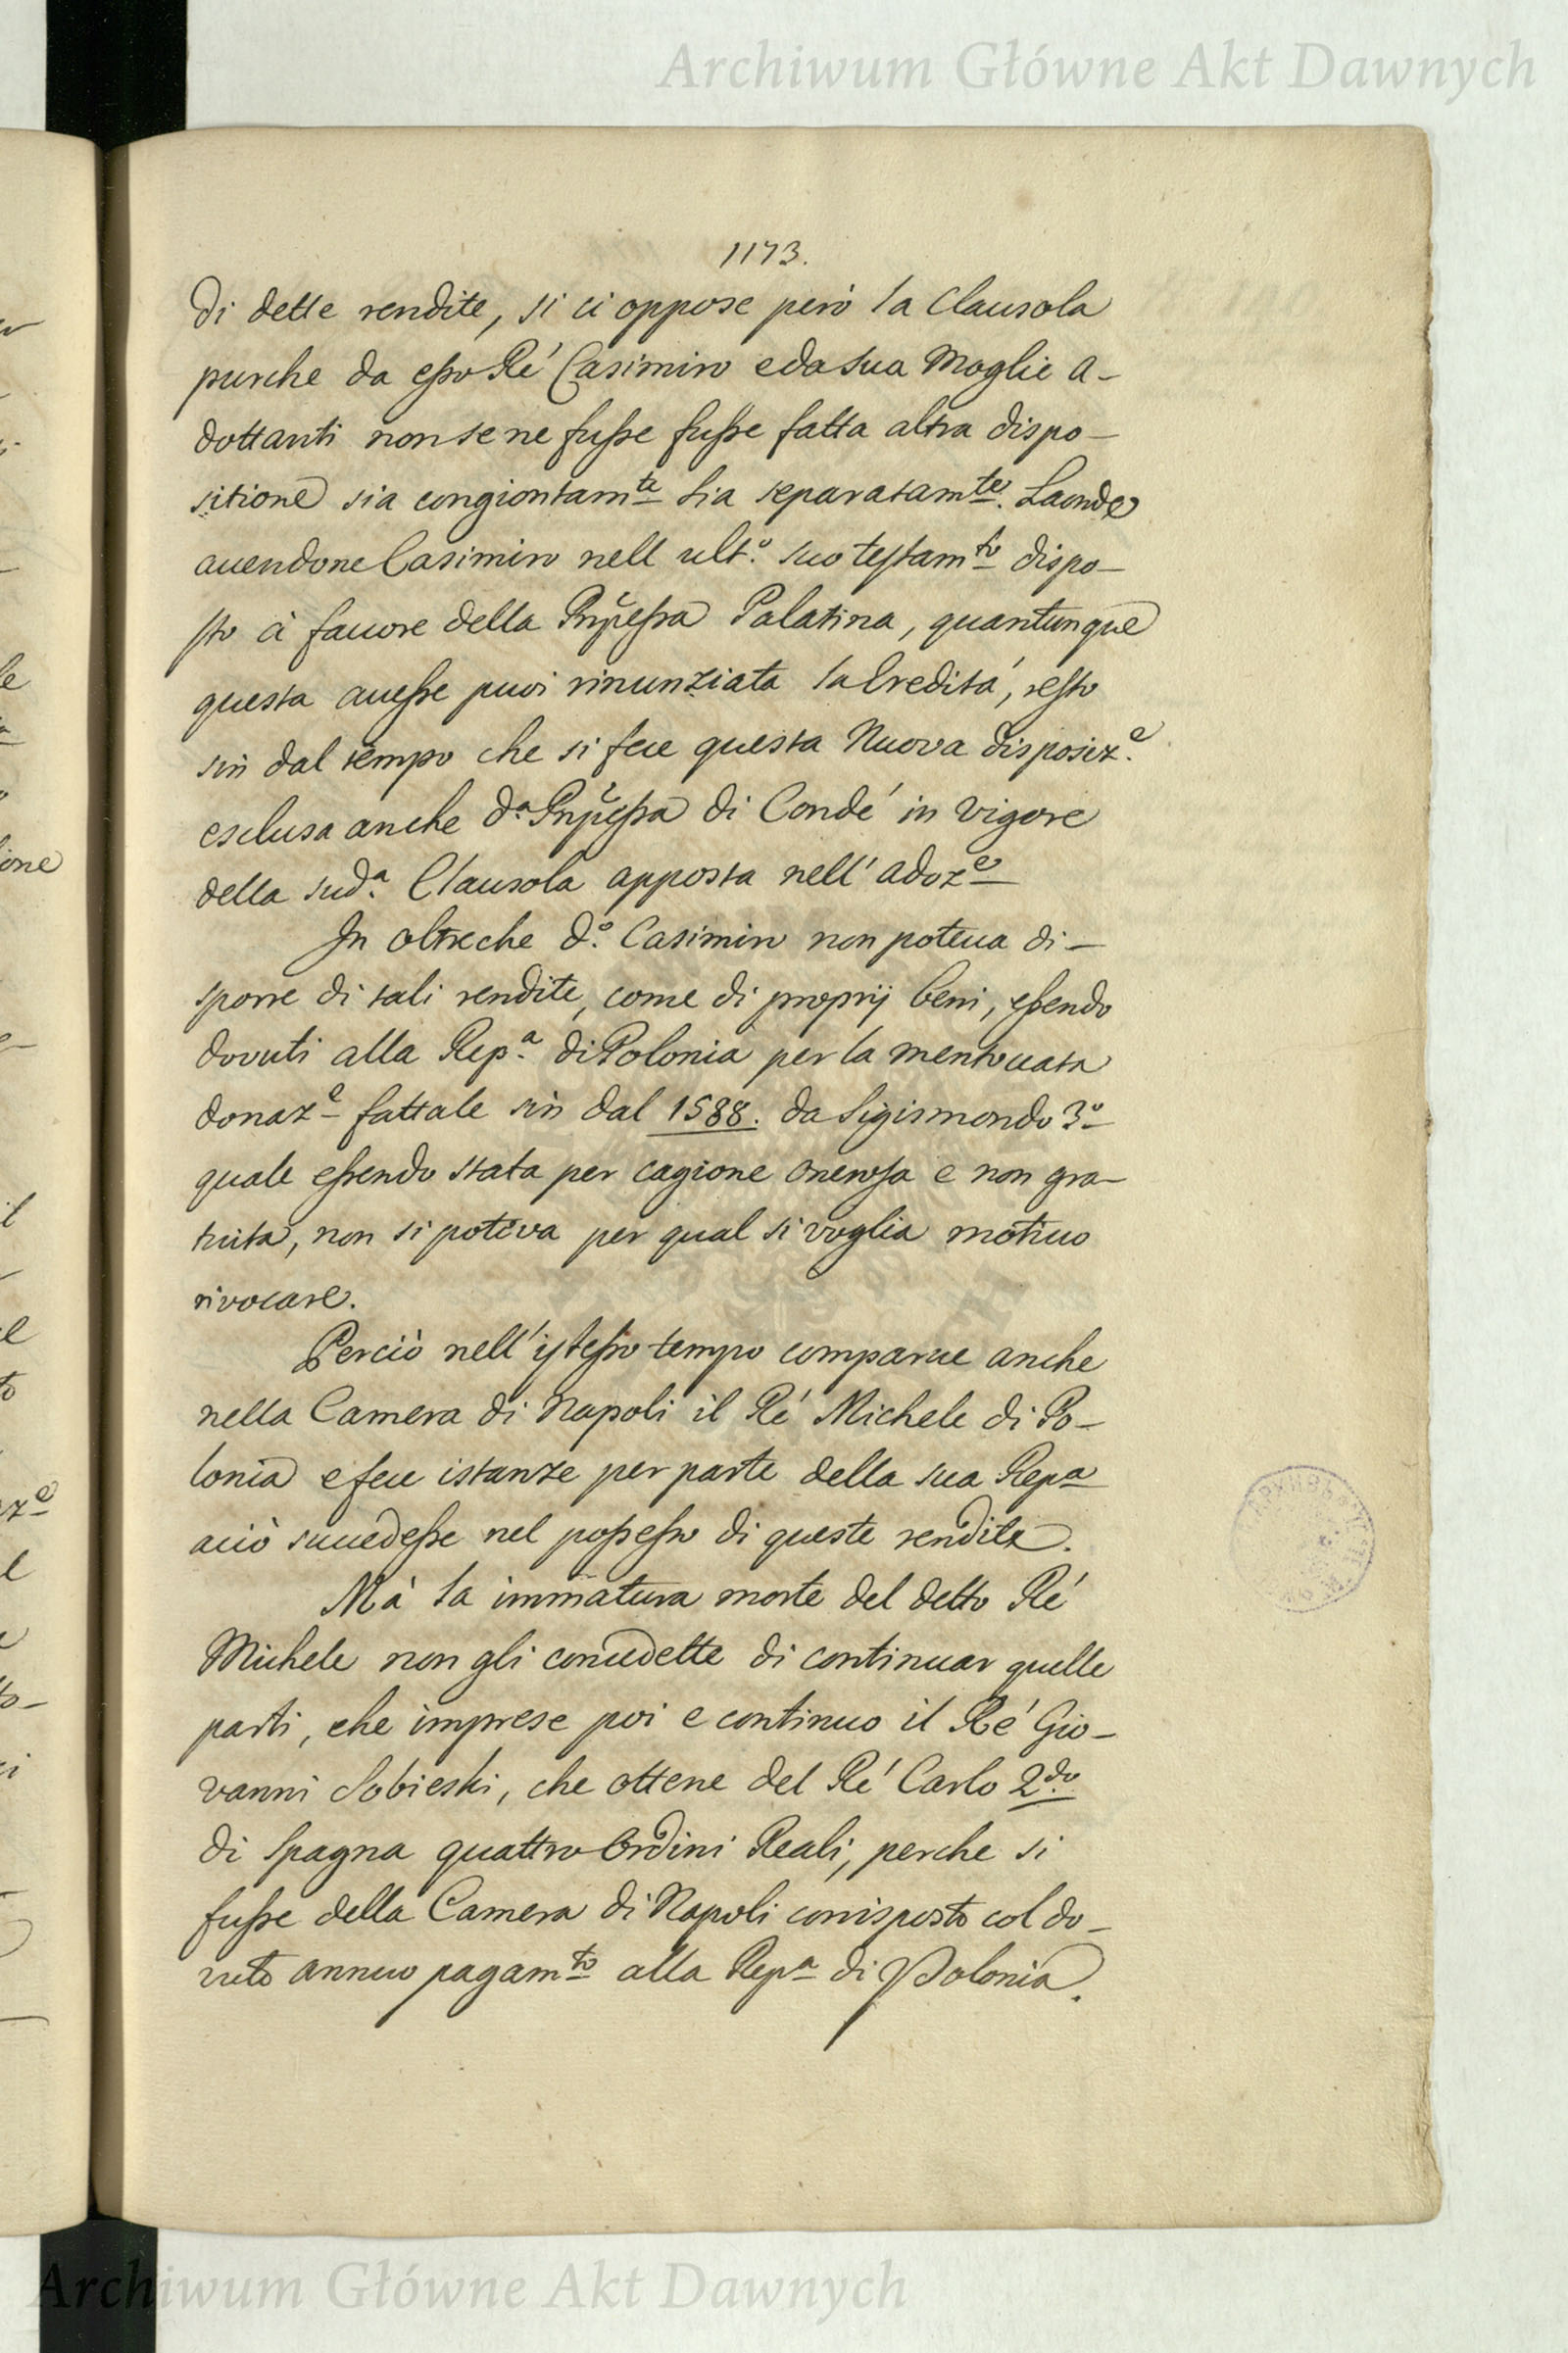 Archiwum Główne Akt Dawnych
1173.
di dette rendite, si ci oppose però la Clausola
purche da esso Ré Casimiro e da sua Moglie a-
dottanti non se ne fusse fusse fatta altra dispo-
sitione sia congiontam.te sia separatam.te. Laonde
auendone Casimiro nell ult.o suo testam.to dispo-
sto à fauore della Prñpessa Palatina, quantunque
questa auesse puoi rinunziata la Eredità, resto
sin dal tempo che si fece questa Nuova disposiz.e
esclusa anche d.a Prñpessa di Condé in vigore
della sud.a Clausola apposta nell' adoz.e
In oltre che d.o Casimiro non poteua di-
sporre di tali rendite, come di proprij beni, essendo
dovuti alla Rep.a di Polonia per la mentouata
donaz.e fattale sin dal 1588. da Sigismondo 3.o
quale essendo stata per cagione onerosa e non gra-
tuita, non si poteva per qual si voglia motiuo
rivocare.
Perciò nell' istesso tempo comparue anche
nella Camera di Napoli il Ré Michele di Po-
lonia e fece istanze per parte della sua Rep.a
acciò succedesse nel possesso di queste rendite.
Mà la immatura morte del detto Ré
Michele non gli concedette di continuar quelle
parti, che imprese poi e continuo il Ré Gio-
vanni Sobieski, che ottene del Ré Carlo 2.do
di Spagna quattro Ordini Reali, perche si
fusse della Camera di Napoli corrisposto col do-
vuto annuo pagam.to alla Rep.a di Polonia.
Archiwum Główne Akt Dawnych